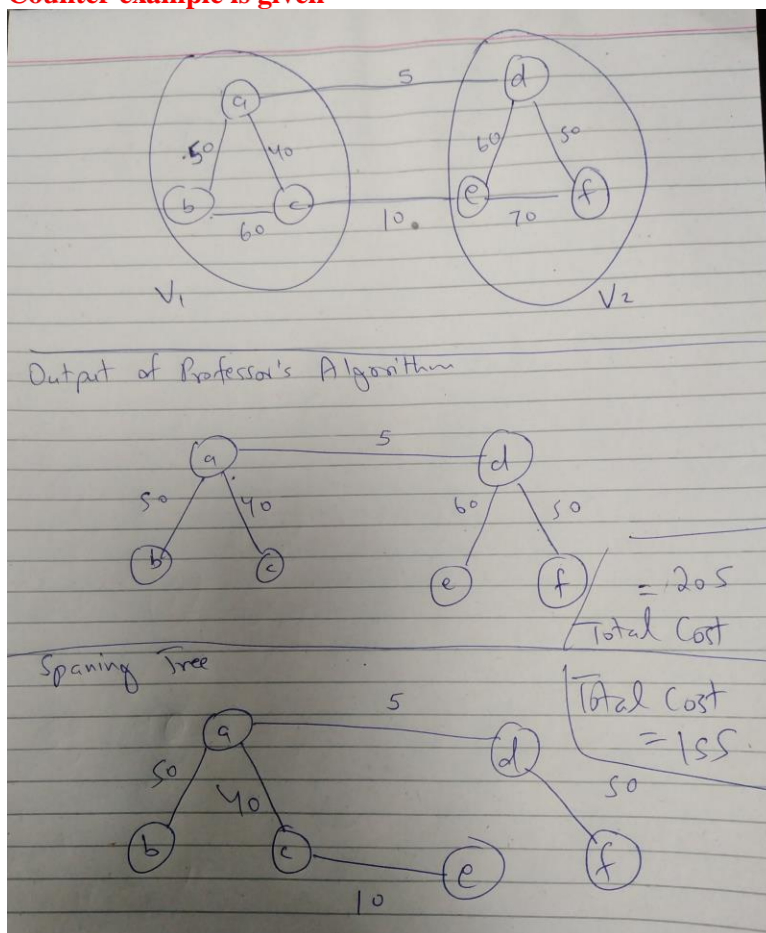 Counter example is given
5
a d
50 40 60 50
b c e f
60 10 70
V1 V2
Output of Professor's Algorithm
5
a d
50 40 60 50
b c e f
= 205
Total Cost
Spaning Tree
5
Total Cost
= 155
a d
50 40 50
b c e f
10